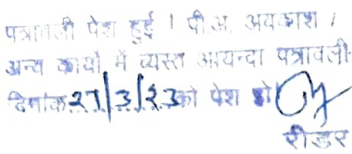 पत्रावली पेश हुई । पी.अ. अवकाश ।
अन्य कार्यो में व्यस्त आयन्दा पत्रावली
दिनांक 27/3/23 को पेश हो
रीडर